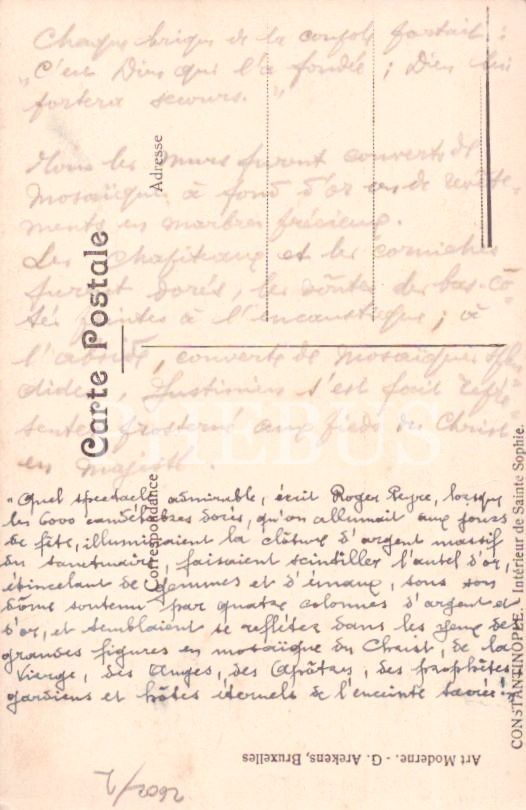 Chaque brique de la coupole portait :
"C'est Dieu qui l'a fondée ; Dieu lui
portera secours."
Tous les murs furent couverts de
mosaïques à fond d'or ou de revête-
ments en marbres précieux.
Les chapiteaux et les corniches
furent dorés, les voûtes des bas-cô-
tés peintes à l'encaustique ; à
l'abside, couverte de mosaïques splen
dides, Justinien s'est fait repré-
senter prosterné aux pieds du Christ
en majesté.
"Quel spectacle admirable, écrit Roger Peyre, lorsque
les 6000 candélabres dorés, qu'on allumait aux jours
de fête, illuminaient la clôture d'argent massif
du sanctuaire, faisaient scintiller l'autel d'or
étincelant de gemmes et d'émaux, sous son
dôme soutenu par quatre colonnes d'argent et
d'or, et semblaient se refléter dans les yeux des
grandes figures en mosaïque du Christ, de la
Vierge, des Anges, des Apôtres, des prophètes
gardiens et hôtes éternels de l'enceinte sacrée!"
Carte Postale
Correspondance
Adresse
CONSTANTINOPLE. Intérieur de Sainte Sophie.
Art Moderne. - G. Arekens, Bruxelles
PHEBUS